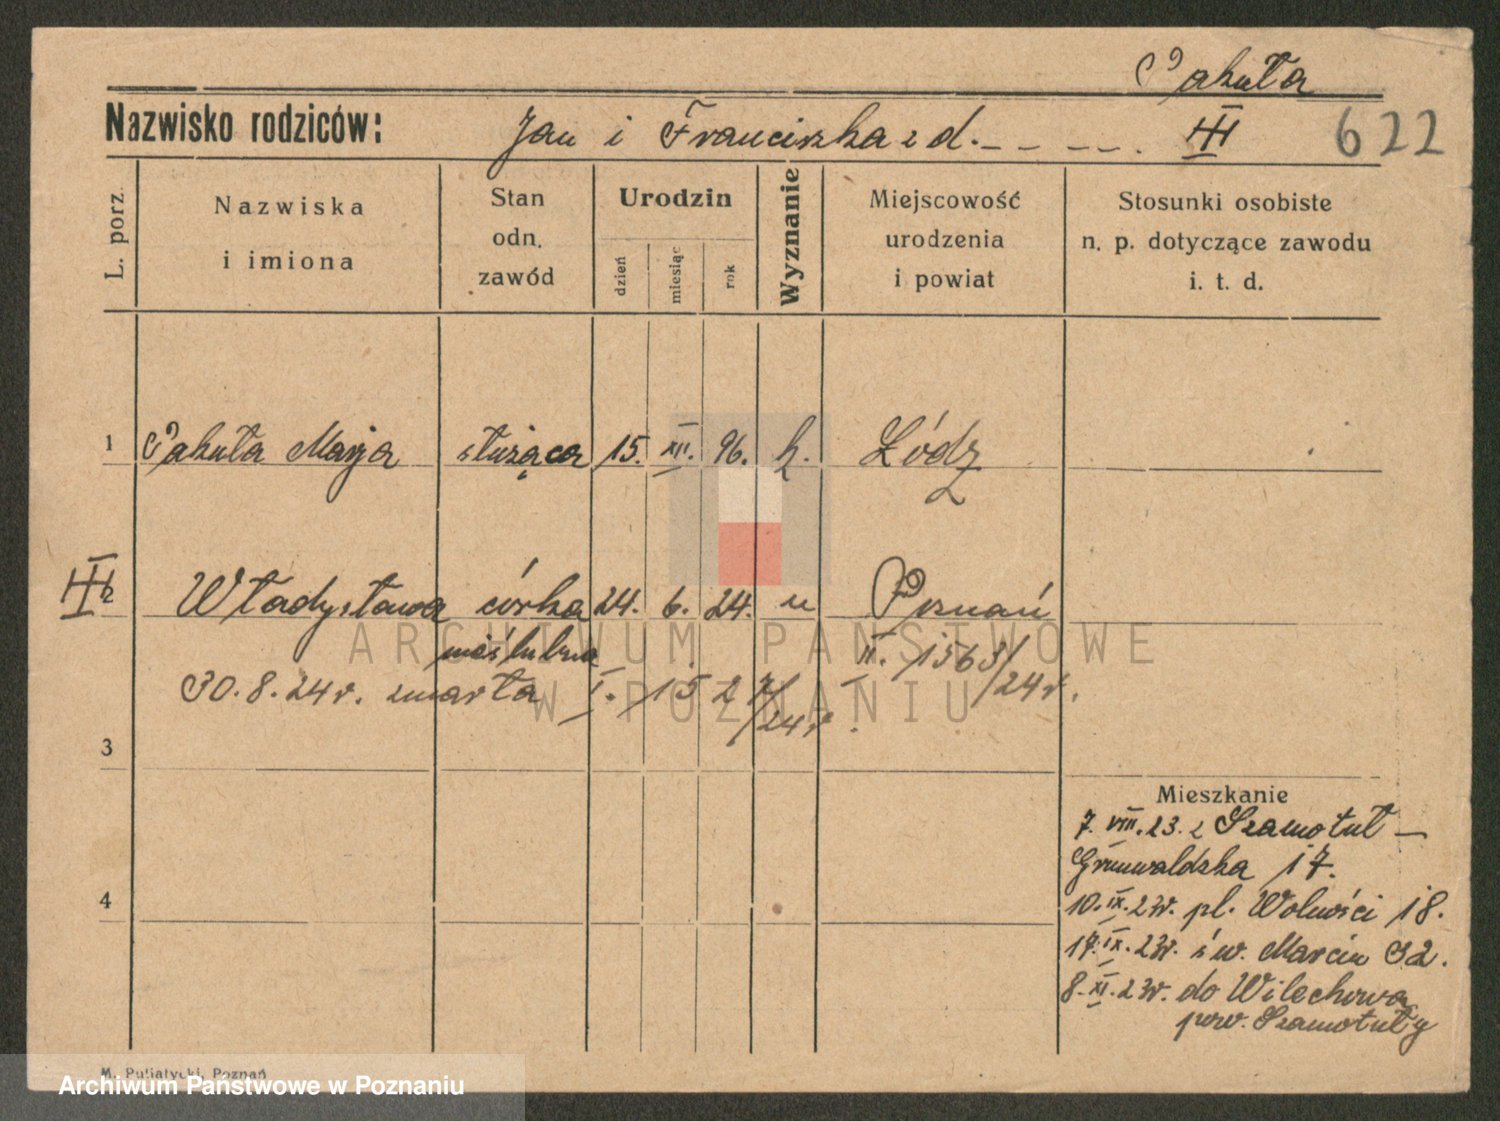 Pakuła
Nazwisko rodziców: Jan i Franciszka z d. - - - - . III 622
L. porz.
Nazwiska
i imiona
Stan
odn.
zawód
Urodzin
dzień
miesiąc
rok
Wyznanie
Miejscowość
urodzenia
i powiat
Stosunki osobiste
n. p. dotyczące zawodu
i. t. d.
1 Pakuła Marja służąca 15. XII. 96. k. Łódz
III 2 Władysława córka 24. 6. 24. u Poznań
nieślubna II. 1563/24r.
30.8.24r. zmarła I. 1527/24r.
3
4
Mieszkanie
7. VIII. 23. z Szamotuł —
Grunwaldzka 17.
10. IX. 23r. pl. Wolności 18.
17. IX. 23r. św. Marcin 32.
8. XI. 23r. do Wilechowa
pow. Szamotuły
ARCHIWUM PAŃSTWOWE
W POZNANIU
M. Putiatycki, Poznań
Archiwum Państwowe w Poznaniu